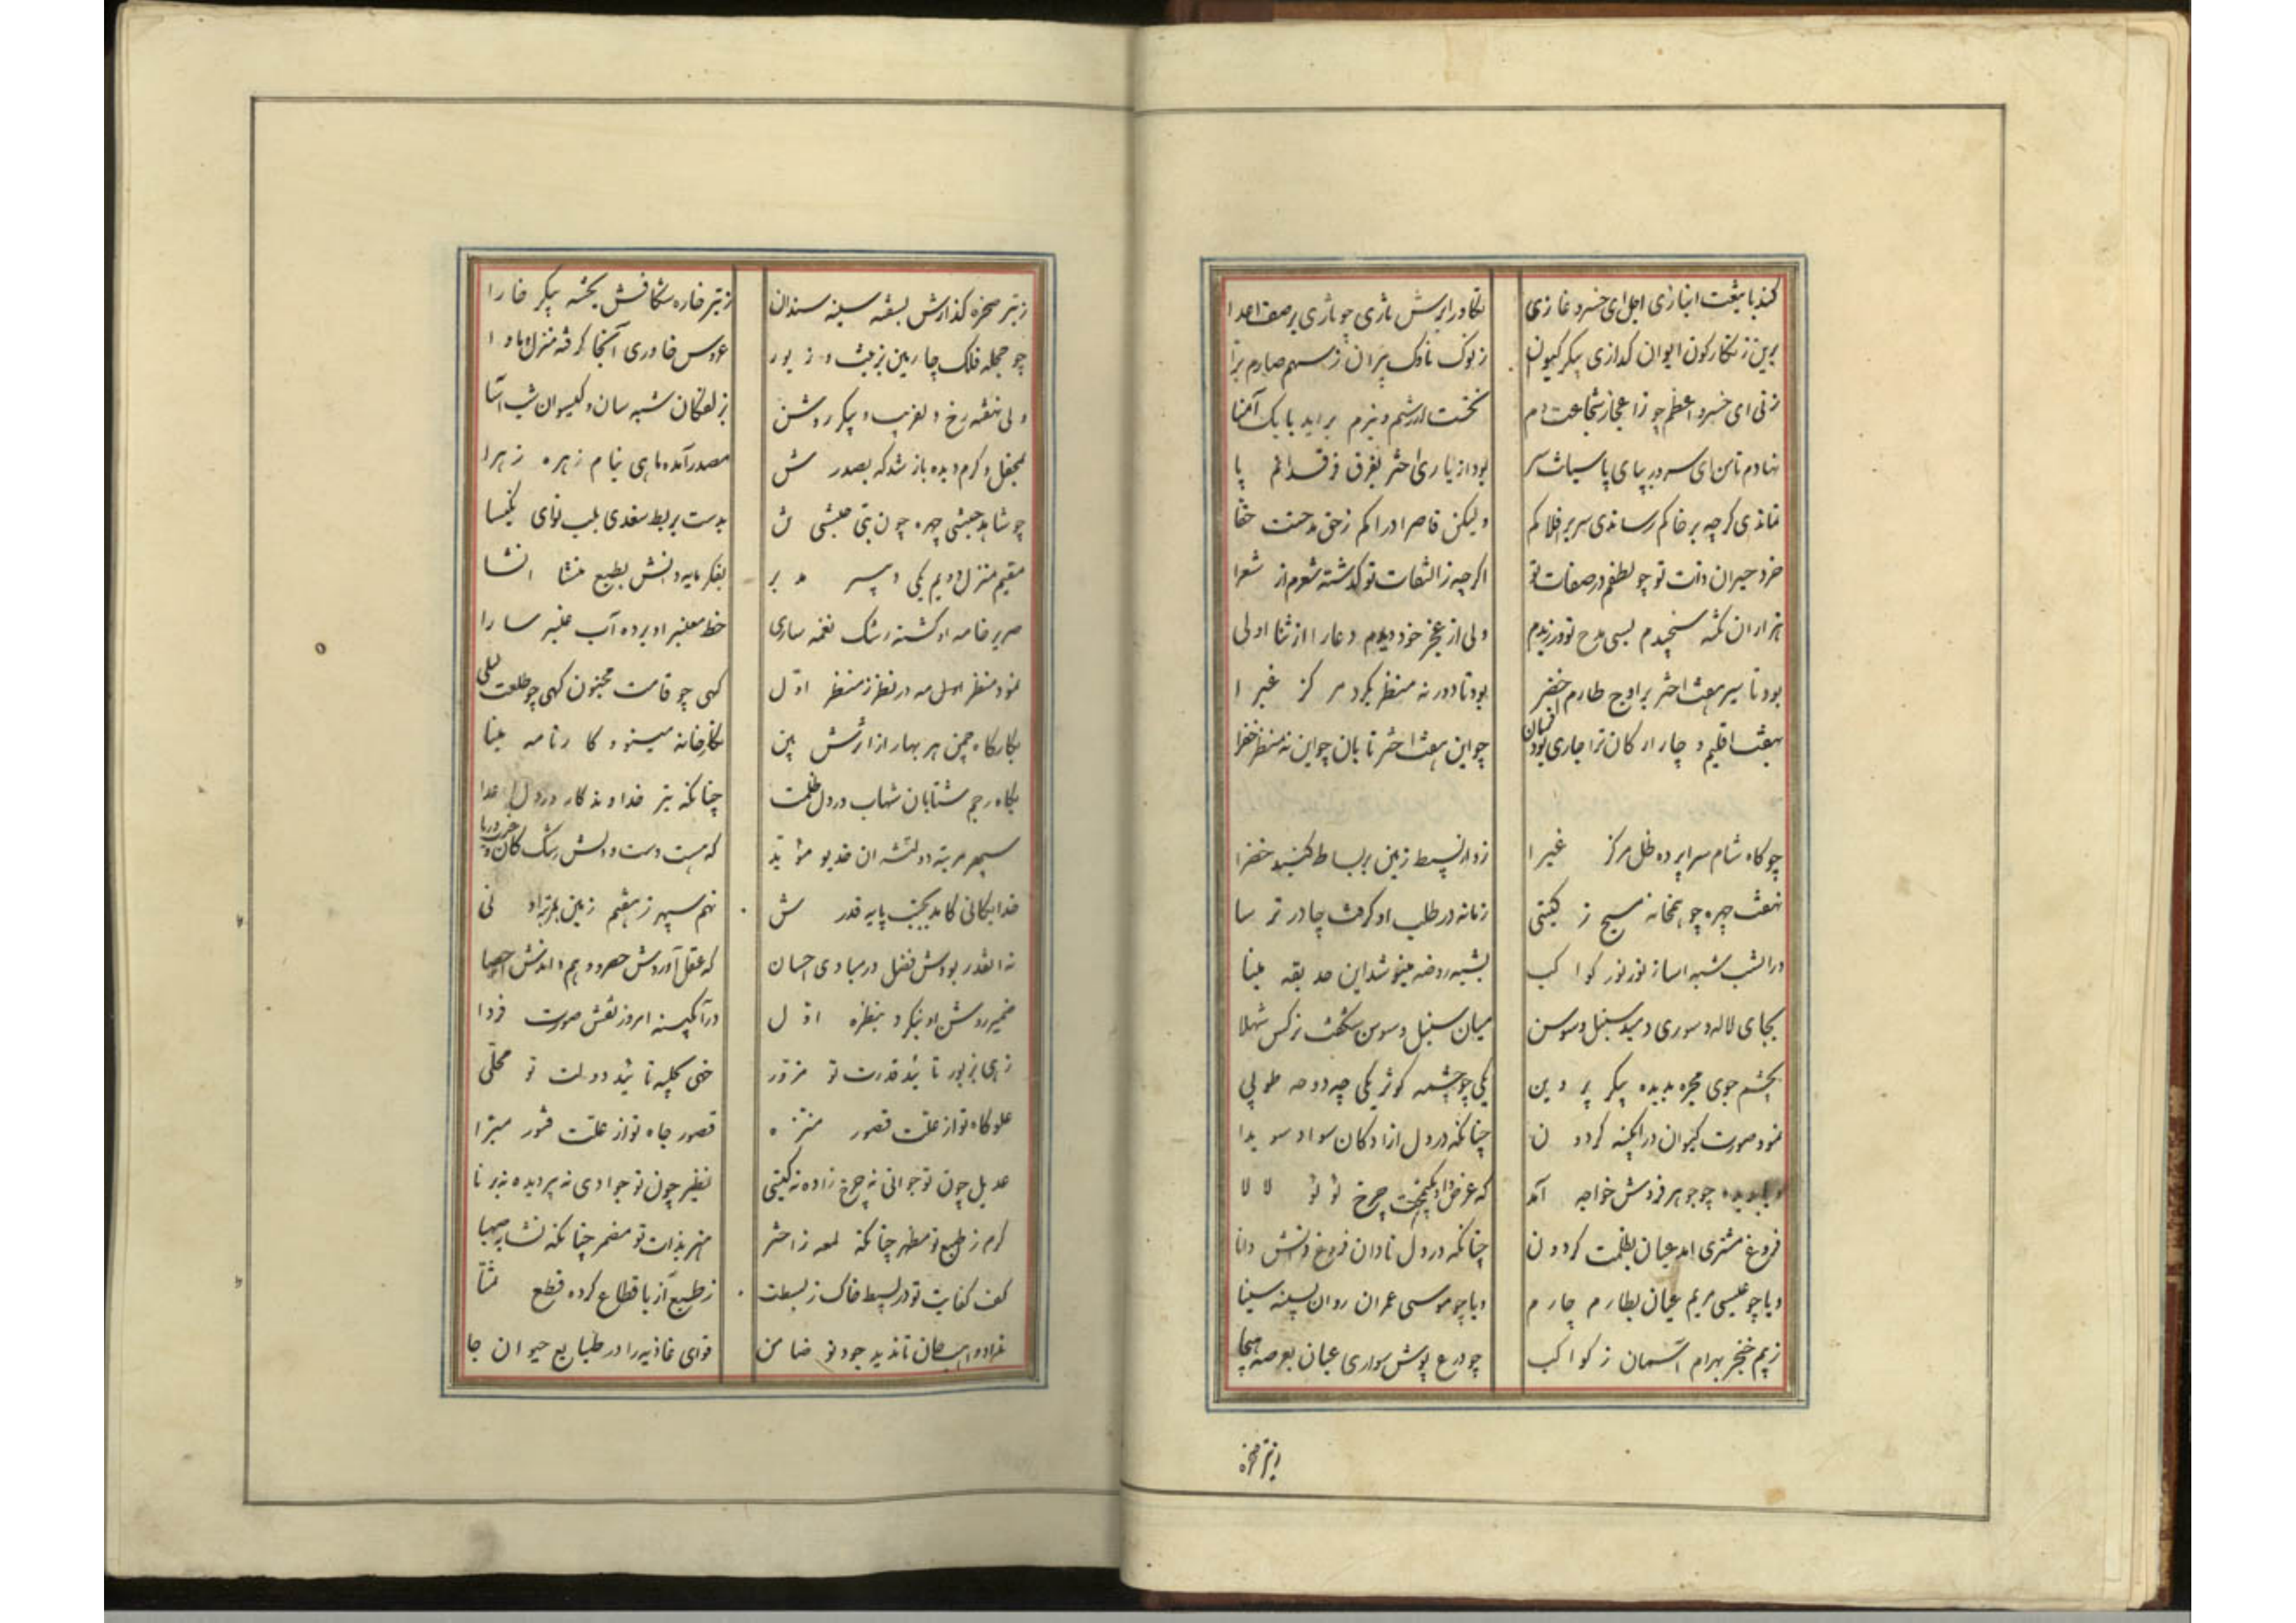 کند با تیغت انبازی اجل ای خسرو غازی تکاور ابرش تازی چو تازی بر صف اعدا
برین زنگارگون ایوان گدازی پیکر کیوان ز نوک ناوک پران ز سهم صارم برا
زنی ای خسرو اعظم چو ز اعجاز شجاعت دم نخست از رزم و بزم براید بانک آمنا
نهادم تا من ای سرور بپای پاسبانت سر بود از یاری اختر بفرق فرقدانم پا
نماندی گرچه بر خاکم رساندی سر بر افلاکم ولیکن قاصر ادراکم ز حق مدحتت حقا
خرد حیران ذات تو چو نطقم در صفات تو اگرچه ز التفات تو گذشته شعرم از شعرا
هزاران نکته سنجیدم بسی مدح تو ورزیدم ولی از عجز خود دیدم دعا را از ثنا اولی
بود تا سیر هفت اختر بر اوج طارم اخضر بود تا دور نه منظر بگرد مرکز غبرا
بهفت اقلیم و چار ارکان ترا جاری بود فرمان چو این هفت اختر تابان چو این نه منظر خضرا
چو کاه شام سراپرده ظل مرکز غبرا زد از بسیط زمین بر بساط گنبد خضرا
نهفت چهره چو همخانه مسیح ز گیتی زمانه در طلب او گرفت چادر ترسا
در انشب شبه اسا از نور نور کواکب بشبه روضه مینو شد این حدیقه مینا
بجای لاله و سوری دمید سنبل و سوسن میان سنبل و سوسن شکفت نرگس شهلا
بچشم جوی مجره بدیده پیکر پروین یکی چو چشمه کوثر یکی چه دوحه طوبی
نمود صورت کیوان در ابگینه گردون چنانکه در دل ازادکان سواد سویدا
چو جوهر فروش خواجه آمد که عرض داد چرخ لؤلؤ لالا
فروغ مشتری امد عیان بظلمت گردون چنانکه در دل نادان فروغ دانش دانا
و یا چو عیسی مریم عیان بطارم چارم و یا چو موسی عمران روان بسینه سینا
ز بیم خنجر بهرام آسمان ز کواکب چو درع پوش سواری عیان بعرصه هیجا
ز تیر صخره
ز تیر صخره گذارش بسفته سینه سندان ز تیر خاره شکافش بخسته پیکر خارا
چو حجله فلک چارمین بزینت و زیور عروس خاوری آنجا گرفته منزل و ماوا
ولی نهفته رخ دلفریب و پیکر روشن بزلفکان شبه سان و کیسوان شب آسا
بمحفل دگرم دیده باز شد که بصدرش مصدر آمده ماهی بنام زهره زهرا
چو شاهد حبشی چهره چون بتی حبشی بدست بربط سغدی بلب نوای نکیسا
مقیم منزل دویم یکی دبیر مدبر بفکر مایه دانش بطبع منشا انشا
صریر خامه او گشته رشک نغمه ساری خط معنبر او برده آب عنبر سارا
نمود منظر اول مه در نظر ز منظر اول گهی چو قامت مجنون گهی چو طلعت لیلی
بکارکاه چمن هر بهار از اثرش بین نکارخانه مینو و کارنامه مینا
بکاه رجم شتابان شهاب در دل ظلمت چنانکه تیر خداوندکار در دل اعدا
سپهر مرتبه دولتشه ان خدیو مؤید که هست دست و دلش رشک کان و دریا
خدایکانی کامد بجنب پایه قدرش نهم سپهر ز هفتم زمین بمرتبه ادنی
نه انقدر بودش فضل در مبادی احسان که عقل آوردش حصر و وهم داندش احصا
ضمیر روشن او نیکرد بنظره اول در آبگینه امروز نقش صورت فردا
زهی بزیور تائید قدرت تو مزور خهی بحلیه تائید دولت تو محلی
علو کاه تو از علت قصور منزه قصور جاه تو از علت فتور مبرا
عدیل چون تو جوانی نه چرخ زاده نه گیتی نظیر چون تو جوادی نه پیر دیده نه برنا
کرم ز طبع تو مظهر چنانکه لمعه ز اختر هنر بذات تو مضمر چنانکه نشا بصهبا
کف کفایت تو در بسیط خاک ز بسطت ز طبع آز با قطاع کرده قطع تمنا
تا نذید جود تو ضامن قوای غاذیه را در طبایع حیوان جا